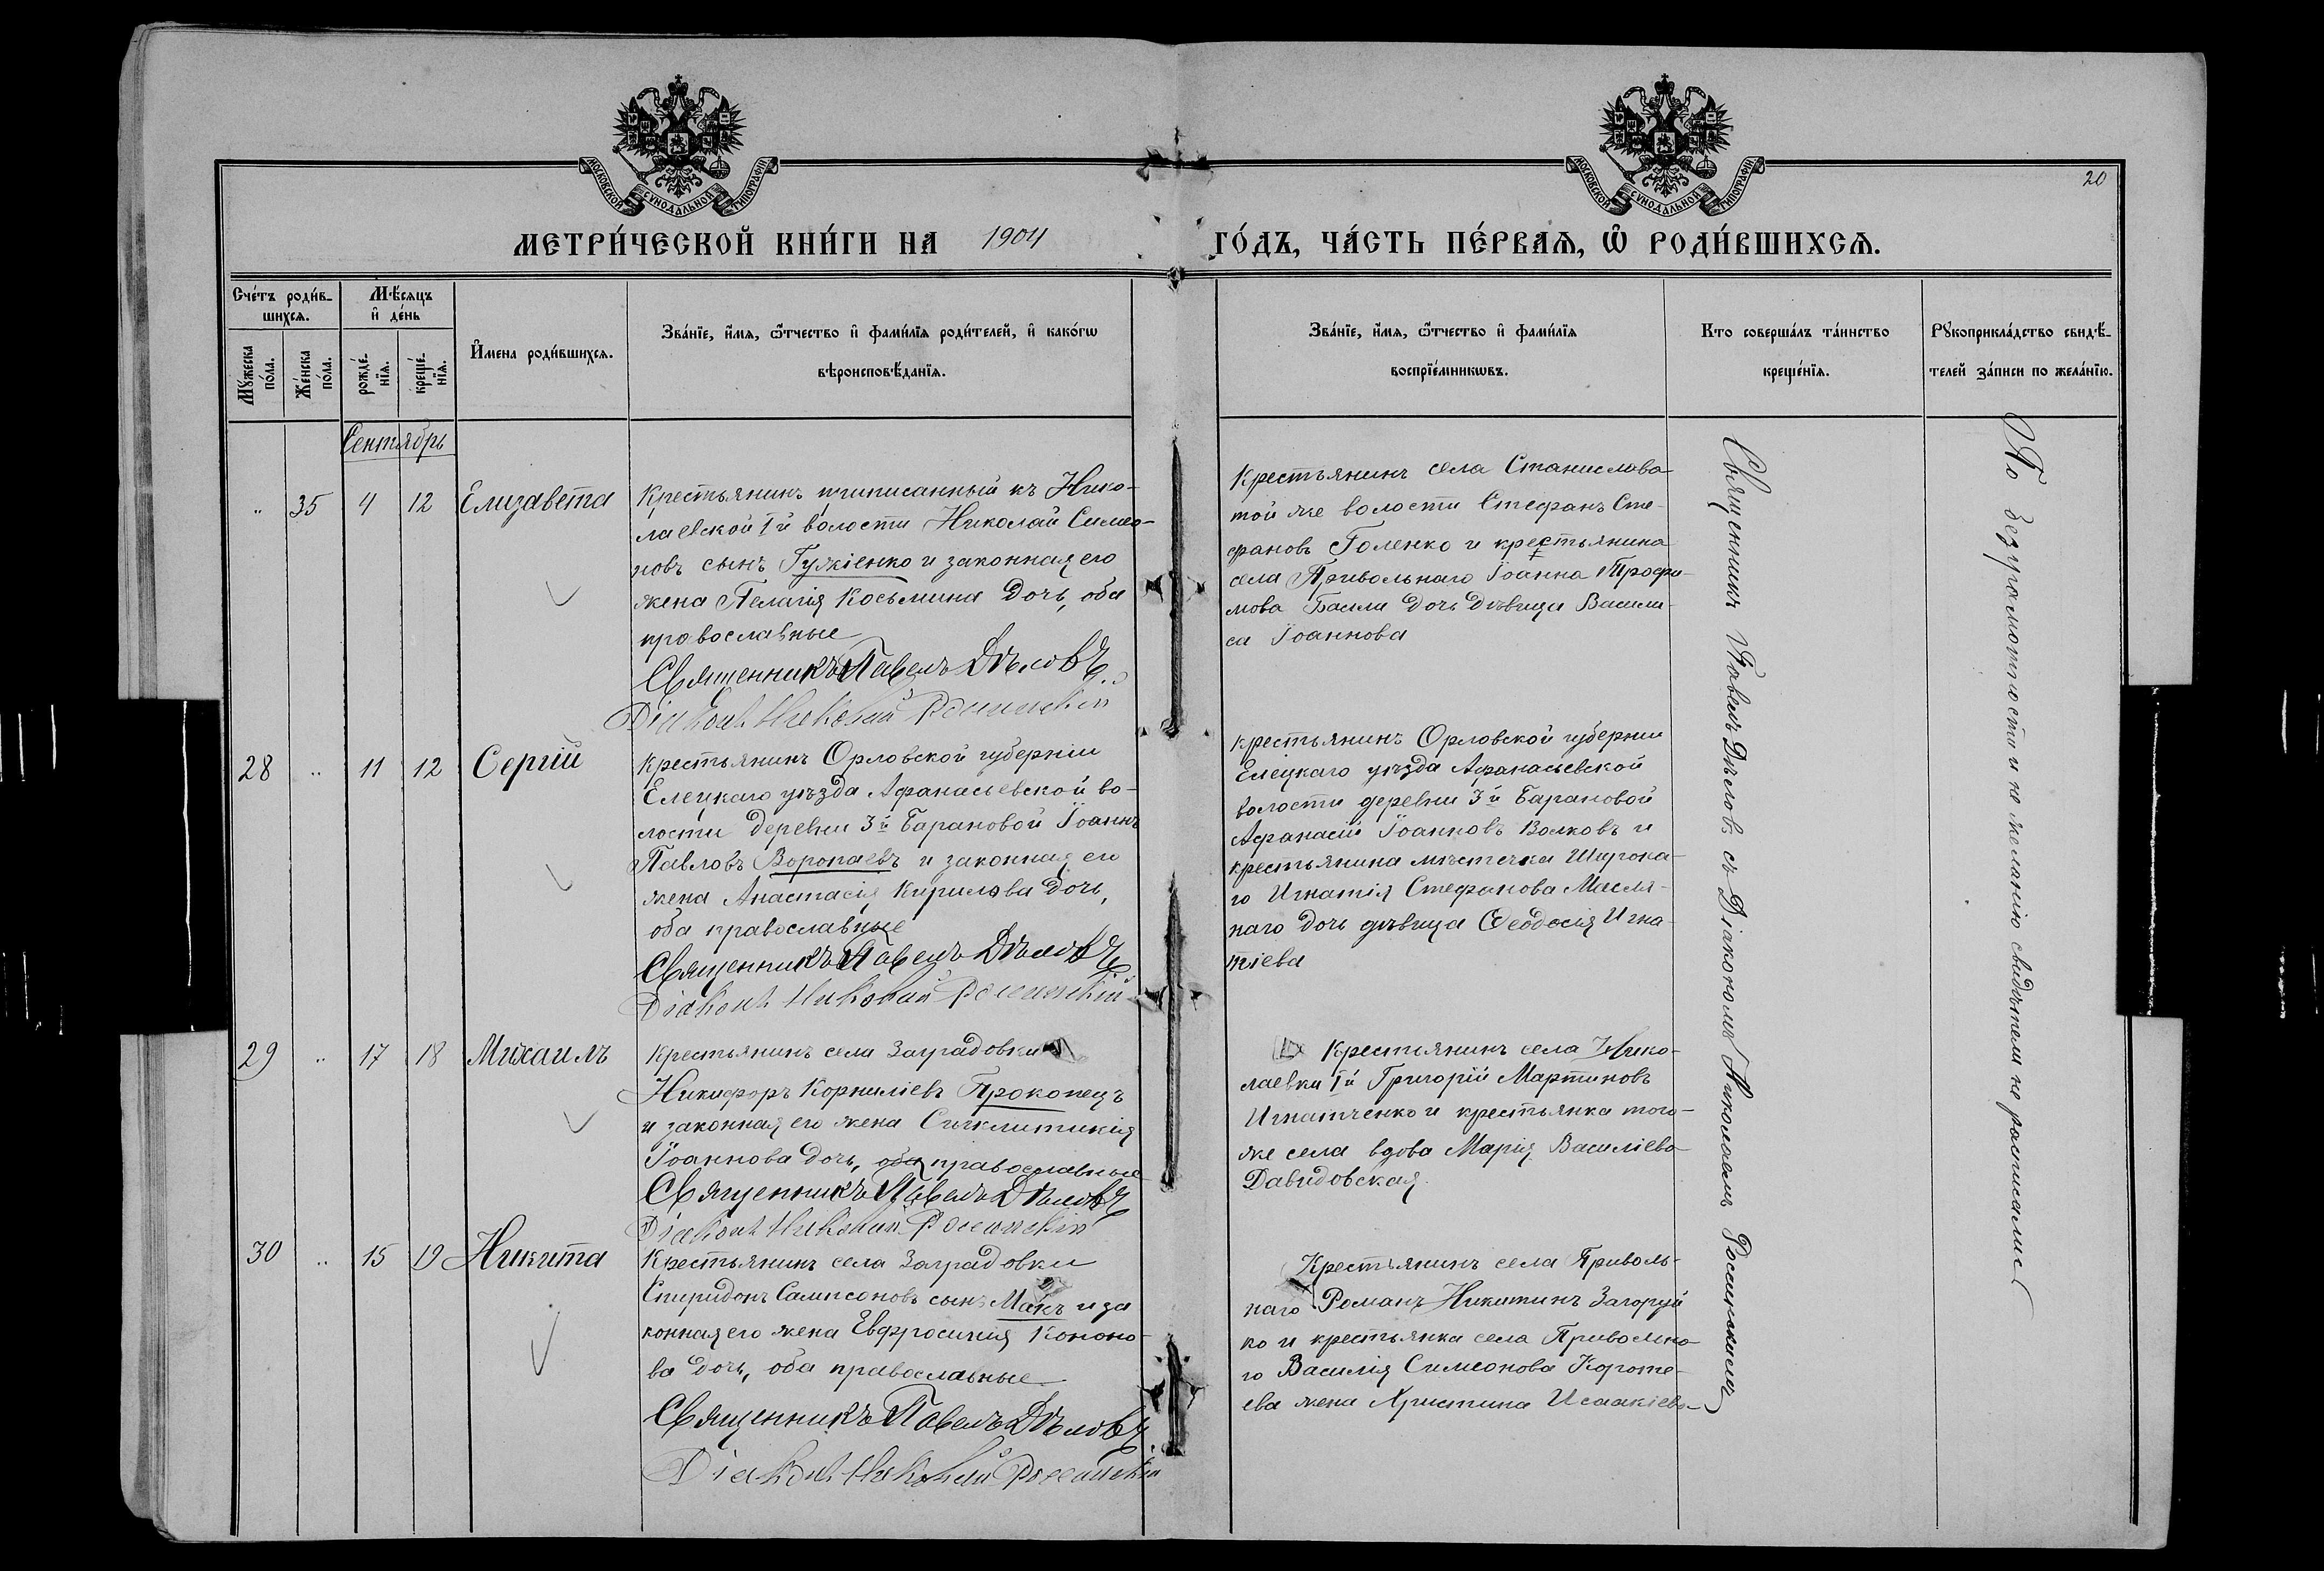 МОСКОВСКОЙ СУНОДАЛЬНОЙ ТИПОГРАФІИ
МОСКОВСКОЙ СУНОДАЛЬНОЙ ТИПОГРАФІИ
20
МЕТРИ́ЧЕСКОЙ КНИ́ГИ НА 1904 ГО́ДЪ, ЧА́СТЬ ПЕ́РВАЯ, Ѽ РОДИ́ВШИХСЯ.
Сче́тъ роди́в-
шихся.
Мѣ́сяцъ
и де́нь
Мꙋ́жеска по́ла.
Же́нска по́ла.
рожде́-
нїя.
креще́-
нїя.
И҆мена роди́вшихся.
Зва́нїе, и҆́мя, ѻ҆́тчество и҆ фами́лїя роди́телей, и҆ како́гѡ
вѣроисповѣ́данїя.
Зва́нїе, и҆́мя, ѻ҆́тчество и҆ фами́лїя
воспрїе́мникѡвъ.
Кто соверша́лъ та́инство
креще́нїя.
Рꙋкоприкла́дство свидѣ́-
телей за́писи по жела́нїю.
Сентябрь
" 35 4 12 Елизавета
Крестьянинъ приписанный къ Нико-
лаевской 1й волости Николай Симео-
новъ сынъ Гужіенко и законная его
жена Пелагія Косьмина дочь, оба
православные
Священникъ Павелъ Дѣловъ
Діаконъ Николай
Крестьянинъ села Станиславо
той же волости Стефанъ Сте-
фановъ Голенко и крестьянина
села Привольнаго Іоанна Трофи-
мова дочь дѣвица Васили-
са Іоаннова
28 " 11 12 Сергій
Крестьянинъ Орловской губерніи
Елецкаго уѣзда Афанасьевской во-
лости деревни 3й Барановой Іоаннъ
Павловъ Воропаевъ и законная его
жена Анастасія Кирилова дочь,
оба православные
Священникъ Павелъ Дѣловъ
Діаконъ Николай
Крестьянинъ Орловской губерніи
Елецкаго уѣзда Афанасьевской
волости деревни 3й Барановой
Афанасій Іоанновъ Волковъ и
крестьянина мѣстечка Широка-
го Игнатія Стефанова Масля-
наго дочь дѣвица Ѳеодосія Игна-
тіева
29 " 17 18 Михаилъ
Крестьянинъ села Заградовки
Никифоръ Корниліевъ Прокопецъ
и законная его жена Сигклитикія
Іоаннова дочь, оба православные
Священникъ Павелъ Дѣловъ
Діаконъ Николай
Крестьянинъ села Нико-
лаевки 1й Григорій Мартиновъ
Игнатченко и крестьянка того-
же села вдова Марія Василіева
Давидовская.
30 " 15 19 Никита
Крестьянинъ села Заградовки
Спиридонъ Сампсоновъ сынъ Макъ и за
конная его жена Евфросинія Кононо-
ва дочь, оба православные
Священникъ Павелъ Дѣловъ
Діаконъ Николай
Крестьянинъ села Приволь-
наго Романъ Никитинъ Загоруй
ко и крестьянка села Привольна-
го Василія Симеонова Короте-
ева жена Христина Исаакіева
Священникъ Павелъ Дѣловъ съ Діакономъ Николаемъ
По безграмотности и не желанію свидѣтели не росписались